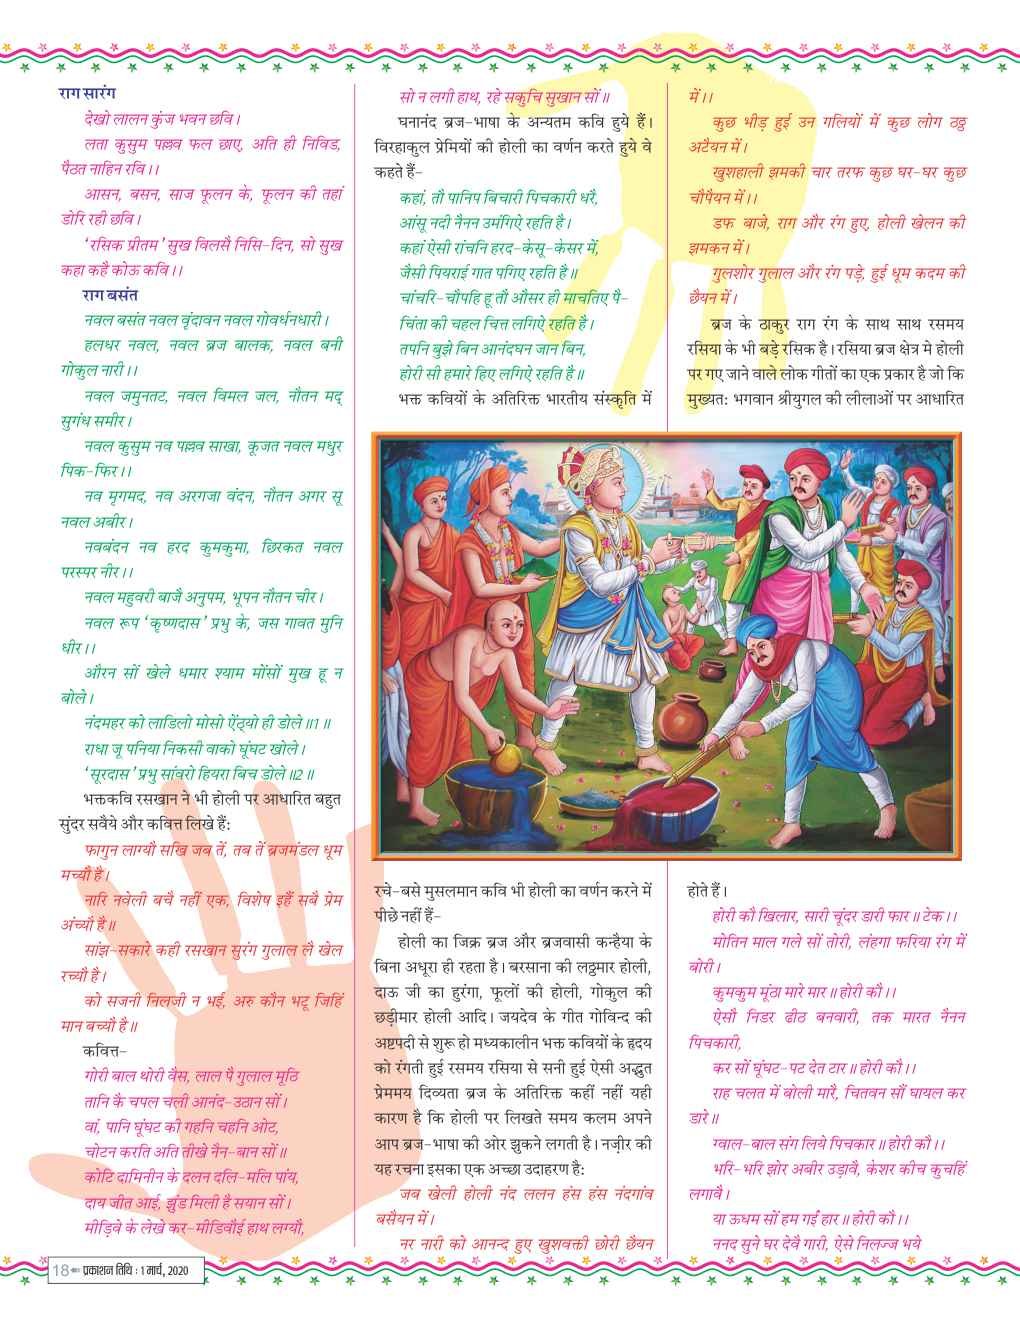 राग सारंग
देखो लालन कुंज भवन छवि।
लता कुसुम पल्लव फल छाए, अति ही निविड,
पैठत नाहिन रवि।।
आसन, बसन, साज फूलन के, फूलन की तहां
डोरि रही छवि।
‘रसिक प्रीतम’ सुख विलसै निसि-दिन, सो सुख
कहा कहै कोऊ कवि।।
राग बसंत
नवल बसंत नवल वृंदावन नवल गोवर्धनधारी।
हलधर नवल, नवल ब्रज बालक, नवल बनी
गोकुल नारी।।
नवल जमुनतट, नवल विमल जल, नौतन मद्
सुगंध समीर।
नवल कुसुम नव पल्लव साखा, कूजत नवल मधुर
पिक-फिर।।
नव मृगमद, नव अरगजा वंदन, नौतन अगर सू
नवल अबीर।
नवबंदन नव हरद कुमकुमा, छिरकत नवल
परस्पर नीर।।
नवल महुवरी बाजै अनुपम, भूपन नौतन चीर।
नवल रूप ‘कृष्णदास’ प्रभु के, जस गावत मुनि
धीर।।
औरन सों खेले धमार श्याम मोंसों मुख हू न
बोले।
नंदमहर को लाडिलो मोसो ऐंठ्यो ही डोले॥1॥
राधा जू पनिया निकसी वाको घूंघट खोले।
‘सूरदास’ प्रभु सांवरो हियरा बिच डोले॥2॥
भक्तकवि रसखान ने भी होली पर आधारित बहुत
सुंदर सवैये और कवित्त लिखे हैं:
फागुन लाग्यौ सखि जब तें, तब तें ब्रजमंडल धूम
मच्यौ है।
नारि नवेली बचै नहीं एक, विशेष इहैं सबै प्रेम
अंच्यौ है॥
सांझ-सकारे कही रसखान सुरंग गुलाल लै खेल
रच्यौ है।
को सजनी निलजी न भई, अरु कौन भटू जिहिं
मान बच्यौ है॥
कवित्त-
गोरी बाल थोरी वैस, लाल पै गुलाल मूठि
तानि कै चपल चली आनंद-उठान सों।
वां, पानि घूंघट की गहनि चहनि ओट,
चोटन करति अति तीखे नैन-बान सों॥
कोटि दामिनीन के दलन दलि-मलि पांय,
दाय जीत आई, झुंड मिली है सयान सों।
मीड़िवे के लेखे कर-मीडिवौई हाथ लग्यौ,
सो न लगी हाथ, रहे सकुचि सुखान सों॥
घनानंद ब्रज-भाषा के अन्यतम कवि हुये हैं।
विरहाकुल प्रेमियों की होली का वर्णन करते हुये वे
कहते हैं-
कहां, तौ पानिप बिचारी पिचकारी धरै,
आंसू नदी नैनन उमंगिऐ रहति है।
कहां ऐसी रांचनि हरद-केसू-केसर में,
जैसी पियराई गात पगिए रहति है॥
चांचरि-चौपहि हू तौ औसर ही माचतिए पै-
चिंता की चहल चित्त लगिऐ रहति है।
तपनि बुझे बिन आनंदघन जान बिन,
होरी सी हमारे हिए लगिऐ रहति है॥
भक्त कवियों के अतिरिक्त भारतीय संस्कृति में
रचे-बसे मुसलमान कवि भी होली का वर्णन करने में
पीछे नहीं हैं-
होली का जिक्र ब्रज और ब्रजवासी कन्हैया के
बिना अधूरा ही रहता है। बरसाना की लठ्ठमार होली,
दाऊ जी का हुरंगा, फूलों की होली, गोकुल की
छड़ीमार होली आदि। जयदेव के गीत गोविन्द की
अष्टपदी से शुरू हो मध्यकालीन भक्त कवियों के हृदय
को रंगती हुई रसमय रसिया से सनी हुई ऐसी अद्भुत
प्रेममय दिव्यता ब्रज के अतिरिक्त कहीं नहीं यही
कारण है कि होली पर लिखते समय कलम अपने
आप ब्रज-भाषा की ओर झुकने लगती है। नज़ीर की
यह रचना इसका एक अच्छा उदाहरण है:
जब खेली होली नंद ललन हंस हंस नंदगांव
बसैयन में।
नर नारी को आनन्द हुए खुशवक्ती छोरी छैयन
में।।
कुछ भीड़ हुई उन गलियों में कुछ लोग ठठ्ठ
अटैयन में।
खुशहाली झमकी चार तरफ कुछ घर-घर कुछ
चौपैयन में।।
डफ बाजे, राग और रंग हुए, होली खेलन की
झमकन में।
गुलशोर गुलाल और रंग पड़े, हुई धूम कदम की
छैयन में।
ब्रज के ठाकुर राग रंग के साथ साथ रसमय
रसिया के भी बड़े रसिक है। रसिया ब्रज क्षेत्र मे होली
पर गए जाने वाले लोक गीतों का एक प्रकार है जो कि
मुख्यत: भगवान श्रीयुगल की लीलाओं पर आधारित
होते हैं।
होरी कौ खिलार, सारी चूंदर डारी फार॥ टेक।।
मोतिन माल गले सों तोरी, लंहगा फरिया रंग में
बोरी।
कुमकुम मूंठा मारे मार॥ होरी कौ।।
ऐसौ निडर ढीठ बनवारी, तक मारत नैनन
पिचकारी,
कर सों घूंघट-पट देत टार॥ होरी कौ।।
राह चलत में बोली मारै, चितवन सौं घायल कर
डारे॥
ग्वाल-बाल संग लिये पिचकार॥ होरी कौ।।
भरि-भरि झोर अबीर उड़ावै, केशर कीच कुचहिं
लगावै।
या ऊधम सों हम गईं हार॥ होरी कौ।।
ननद सुने घर देवै गारी, ऐसे निलज्ज भये
18 प्रकाशन तिथि : 1 मार्च, 2020